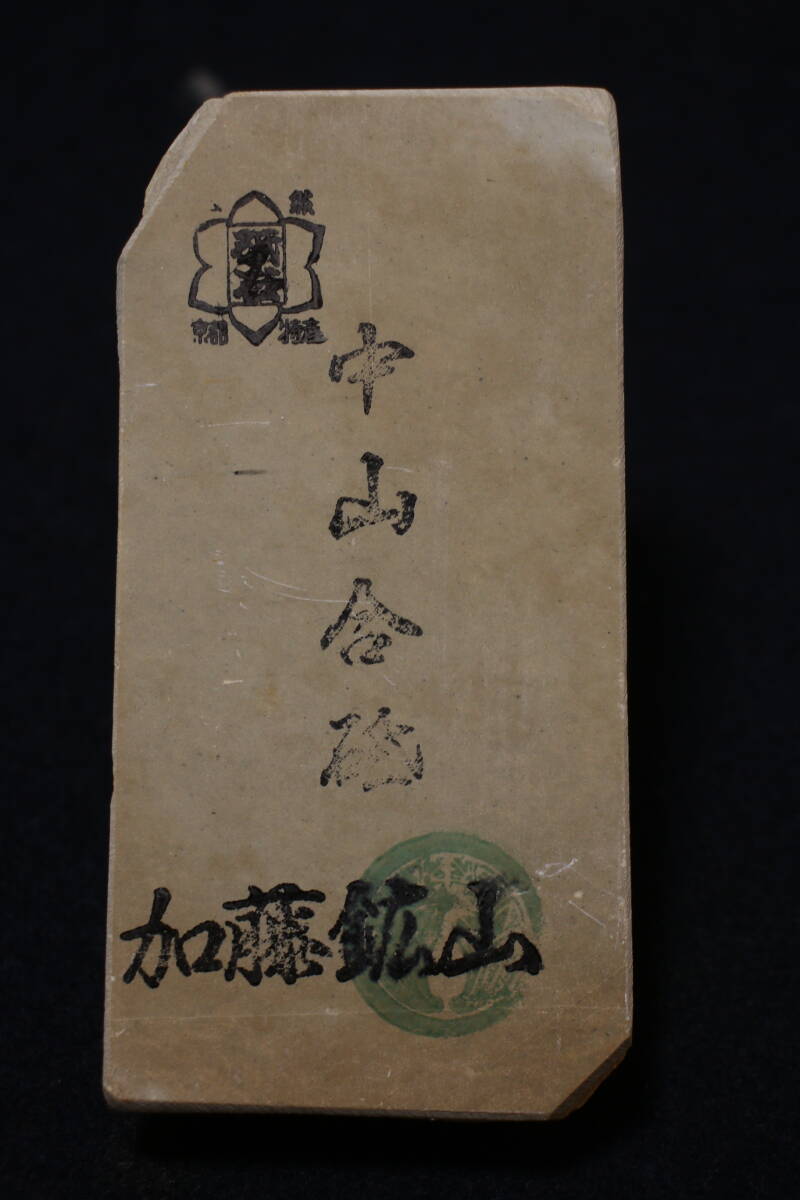 京都 特産
中山合砥
加藤鉱山